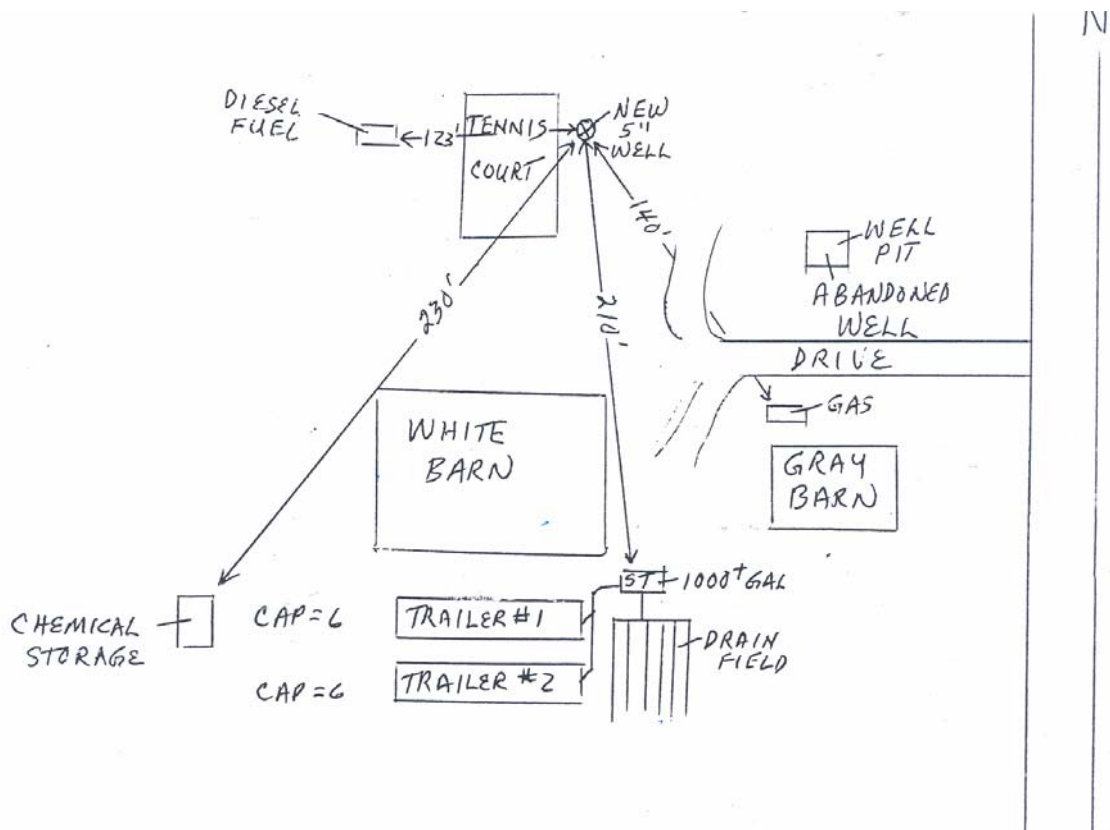 N
DIESEL
FUEL
123'
TENNIS
COURT
NEW
5"
WELL
140'
WELL
PIT
ABANDONED
WELL
230'
210'
DRIVE
GAS
WHITE
BARN
GRAY
BARN
ST
1000+ GAL
CHEMICAL
STORAGE
CAP=6
TRAILER #1
DRAIN
FIELD
CAP=6
TRAILER #2